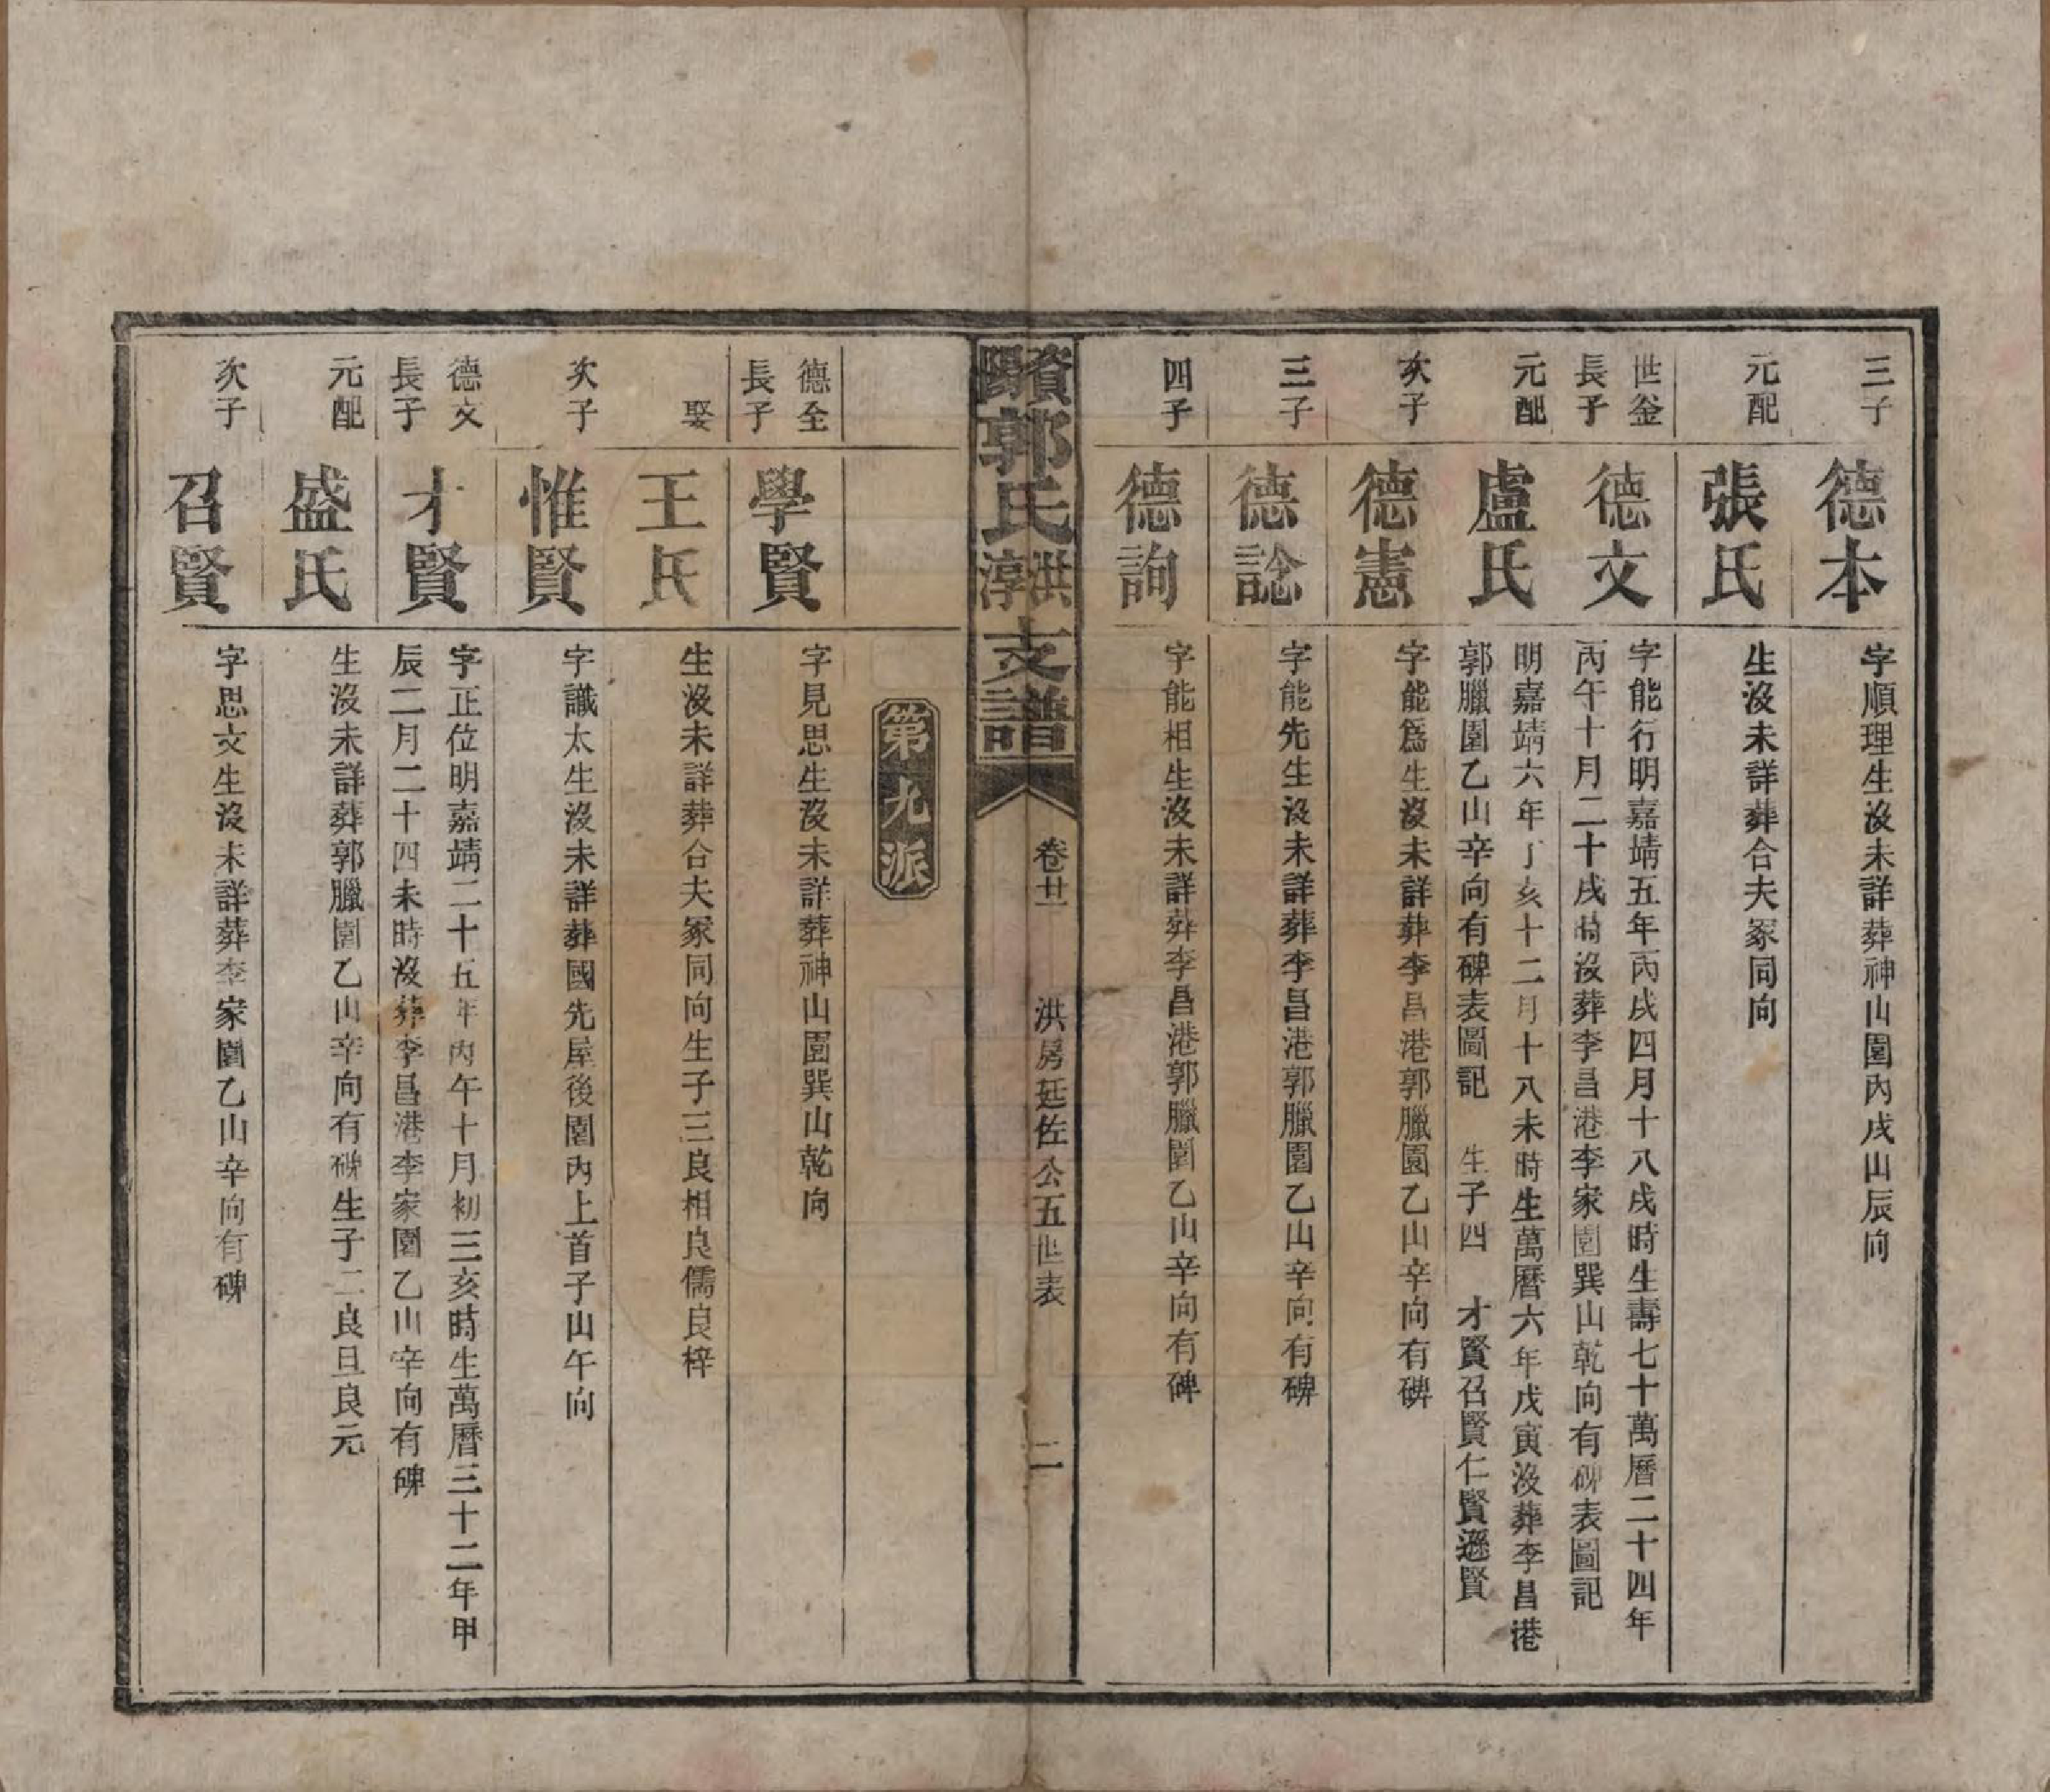 三子
德本
字順理生沒未詳葬神山園內戌山辰向
元配
張氏
生沒未詳葬合夫冢同向
世釜
長子
德文
字能行明嘉靖五年丙戌四月十八戌時生壽七十萬曆二十四年
丙午十月二十戌時沒葬李昌港李家園巽山乾向有碑表圖記
元配
盧氏
明嘉靖六年丁亥十二月十八未時生萬曆六年戊寅沒葬李昌港
郭臘園乙山辛向有碑表圖記 生子四 才賢召賢仁賢遜賢
次子
德憲
字能為生沒未詳葬李昌港郭臘園乙山辛向有碑
三子
德諗
字能先生沒未詳葬李昌港郭臘園乙山辛向有碑
四子
德詢
字能相生沒未詳葬李昌港郭臘園乙山辛向有碑
資陽郭氏洪淳支譜
卷廿二
洪房廷佐公五世表
二
第九派
德全
長子
學賢
字見思生沒未詳葬神山園巽山乾向
娶
王氏
生沒未詳葬合夫冢同向生子三良相良儒良梓
次子
惟賢
字讖太生沒未詳葬國先屋後園內上首子山午向
德文
長子
才賢
字正位明嘉靖二十五年丙午十月初三亥時生萬曆三十二年甲
辰二月二十四未時沒葬李昌港李家園乙山辛向有碑
元配
盛氏
生沒未詳葬郭臘園乙山辛向有碑生子二良旦良元
次子
召賢
字思文生沒未詳葬李家園乙山辛向有碑